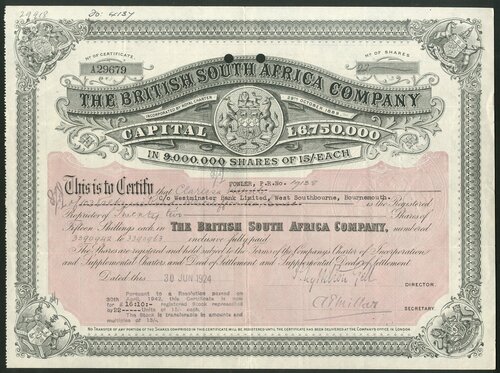 29918
No. 4137
Nº OF CERTIFICATE
A29679
Nº OF SHARES
22
THE BRITISH SOUTH AFRICA COMPANY
INCORPORATED BY ROYAL CHARTER
29TH OCTOBER 1889
CAPITAL £6,750,000
IN 9,000,000 SHARES OF 15/- EACH
This is to Certify that Clarissa FOWLER, P.R.No. 4138
c/o Westminster Bank Limited, West Southbourne, Bournemouth.
is the Registered
Proprietor of Twenty two Shares of
Fifteen Shillings each, in THE BRITISH SOUTH AFRICA COMPANY, numbered
3390942 to 3390963 inclusive fully paid
The Shares are registered and held subject to the Terms of the Company's Charter of Incorporation
and Supplemental Charters and Deed of Settlement and Supplemental Deeds of Settlement.
Dated this 30 JUN 1924
DIRECTOR.
Pursuant to a Resolution passed on
30th April, 1942, this Certificate is now
for £ 16:10:- registered Stock represented
by 22 Units of 15/- each.
The Stock is transferable in amounts and
multiples of 15/-.
SECRETARY.
NO TRANSFER OF ANY PORTION OF THE SHARES COMPRISED IN THIS CERTIFICATE WILL BE REGISTERED UNTIL THE CERTIFICATE HAS BEEN DELIVERED AT THE COMPANY'S OFFICE IN LONDON